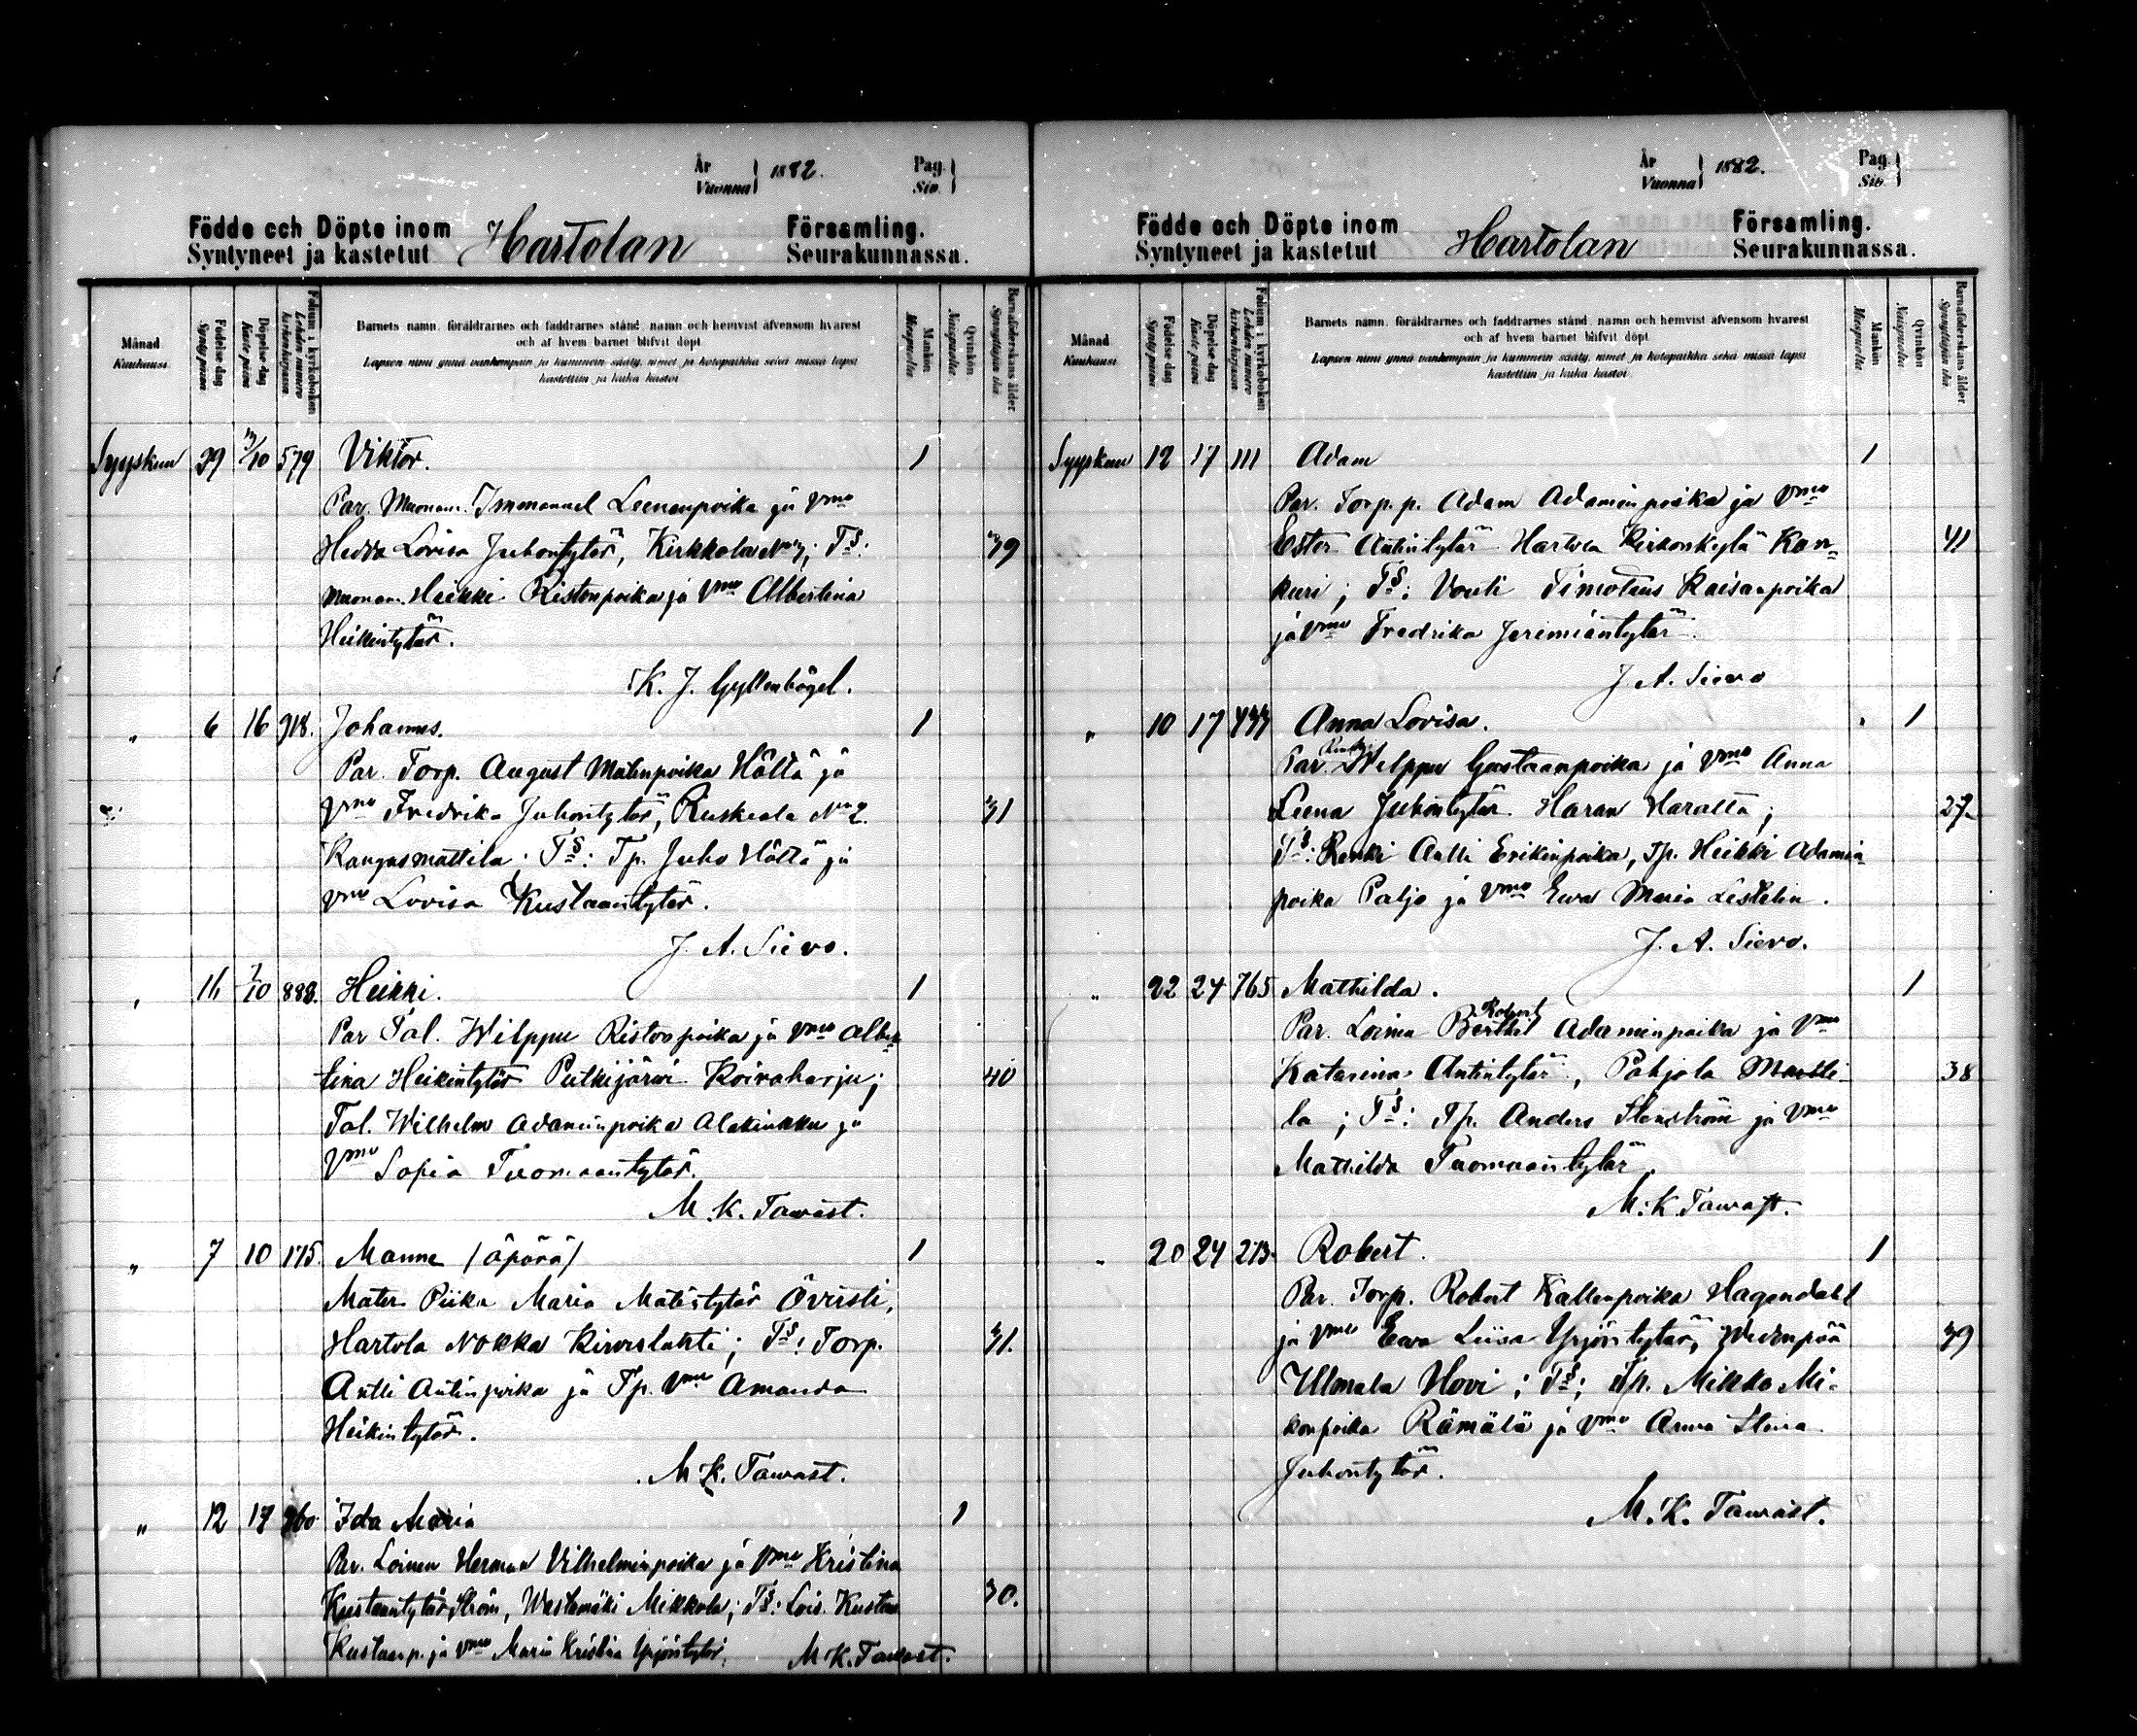 År
Vuonna 1882.
Pag.
Siv.
Födde och Döpte inom
Syntyneet ja kastetut
Hartolan
Församling.
Seurakunnassa.
Månad
Kuukausi
Födelse dag
Synty päivä
Döpelse dag
Kaste päivä
Folium i kyrkoboken
Lehden numero kirkonkirjassa
Barnets namn, föräldrarnes och faddrarnes stånd, namn och hemvist äfvensom hvarest
och af hvem barnet blifvit döpt
Lapsen nimi ynnä vanhempain ja kummein sääty, nimet ja kotopaikka sekä missä lapsi
kastettiin ja kuka kastoi
Mankön
Miespuolta
Qvinkön
Naispuolta
Barnaföderskans ålder
Synnyttäjän ikä
Syyskuu 29 /10 579 Viktor. 1
Par. Muonam. Immanuel Leenanpoika ja Vmo
Hedda Lovisa Juhontytär, Kirkkola; Ts: 39
Muonam. Heikki Ristonpoika ja Vmo Albertina
Heikintytär.
K. J. Gyllenbögel.
" 6 16 318. Johannes. 1
Par. Torp. August Matinpoika Höltä ja
Vmo Fredrika Juhontytär, Ruskeala No 2. 31
Kangasmattila: Ts: Tp. Juho Höltä ja
Vmo Lovisa Kustaantytär.
J. A. Sievo.
" 16 1/10 888. Heikki. 1
Par Tal. Wilppu Ristonpoika ja Vmo Alber
tina Heikintytär Putkijärwi Koivaharju; 40
Tal. Wilhelm Adaminpoika Alakinkku ja
Vmo Sofia Tuomaantytär.
M. K. Tawast.
" 7 10 175. Manne (äpärä) 1
Mater Piika Maria Matintytär Öveisti,
Hartola Nokka Kirveslahti; Ts: Torp. 31.
Antti Antinpoika ja Tp. Vmo Amanda
Heikintytär.
M. K. Tawast.
" 12 17 360 Ida Maria 1
Par. Loinen Herman Vilhelminpoika ja Vmo Kristina
Kustaantytär Ström, Westamäki Mikkola; Ts: Lois. Kustaa 30.
Kustaanp. ja Vmo Maria Kristina Yrjöntytär. M. K. Tawast.
År
Vuonna 1882.
Pag.
Siv.
Födde och Döpte inom
Syntyneet ja kastetut
Hartolan
Församling.
Seurakunnassa.
Månad
Kuukausi
Födelse dag
Synty päivä
Döpelse dag
Kaste päivä
Folium i kyrkoboken
Lehden numero kirkonkirjassa
Barnets namn, föräldrarnes och faddrarnes stånd, namn och hemvist äfvensom hvarest
och af hvem barnet blifvit döpt
Lapsen nimi ynnä vanhempain ja kummein sääty, nimet ja kotopaikka sekä missä lapsi
kastettiin ja kuka kastoi
Mankön
Miespuolta
Qvinkön
Naispuolta
Barnaföderskans ålder
Synnyttäjän ikä
Syyskuu 12 17 111 Adam 1
Par. Torp. p. Adam Adaminpoika ja Vmo
Ester Antintytär Hartola Kirkonkylä Kan= 41
kuri; Ts: Vouti Timoteus Kaisanpoika
ja Vmo Fredrika Jeremiantytär.
J. A. Sievo
" 10 17 Anna Lovisa. 1
Par. Wilppu Gustaanpoika ja Vmo Anna
Leena Juhontytär Haran Haralta; 27
Ts: Renki Antti Erikinpoika, Tp. Heikki Adamin
poika Paljo ja Vmo Ewa Maria Lestelin.
J. A. Sievo.
" 22 24 765 Mathilda. 1
Robert
Par. Loinen Berthil Adaminpoika ja Vmo
Katarina Antintytär, Pohjola Martti- 38
la; Ts: Tp. Anders Stenström ja Vmo
Mathilda Tuomaantytär.
M. K. Tawast.
" 20 24 273 Robert. 1
Par. Torp. Robert Kallenpoika Hagendahl
ja Vmo Ewa Liisa Yrjöntytär, Wedenpää 39
Ulmala Hovi; Ts; Tp. Mikko Mi-
konpoika Rämälä ja Vmo Anna Stina
Juhontytär.
M. K. Tawast.